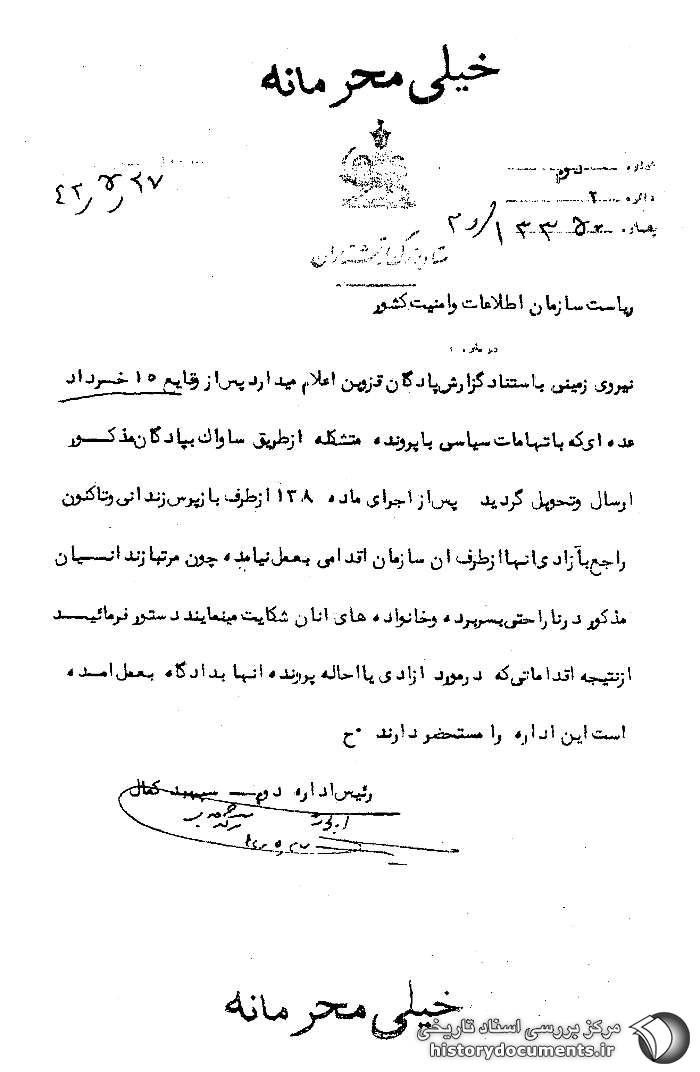 خیلی محرمانه
اداره دوم
دائره ۲
شماره ۱۳۳۵۰
۴۲٫۵٫۲۷
ستاد بزرگ ارتشتاران
ریاست سازمان اطلاعات وامنیت کشور
درباره :
نیروی زمینی باستناد گزارش پادگان قزوین اعلام میدارد پس از وقایع ۱۵ خرداد
عده ای که باتهامات سیاسی با پرونده متشکله ازطریق ساواك بپادگان مذکور
ارسال وتحویل گردید پس از اجرای ماده ۱۳۸ ازطرف بازپرس زندانی وتاکنون
راجع بآزادی انها ازطرف ان سازمان اقدامی بعمل نیامده چون مرتبا زندانسیان
مذکور درناراحتی بسربرده وخانواده های انان شکایت مینمایند دستور فرمائید
ازنتیجه اقداماتی که درمورد ازادی یا احاله پرونده انها بدادگاه بعمل امده
است این اداره را مستحضر دارند ح
رئیس اداره دوم – سپهبد کمال
خیلی محرمانه
مرکز بررسی اسناد تاریخی
historydocuments.ir